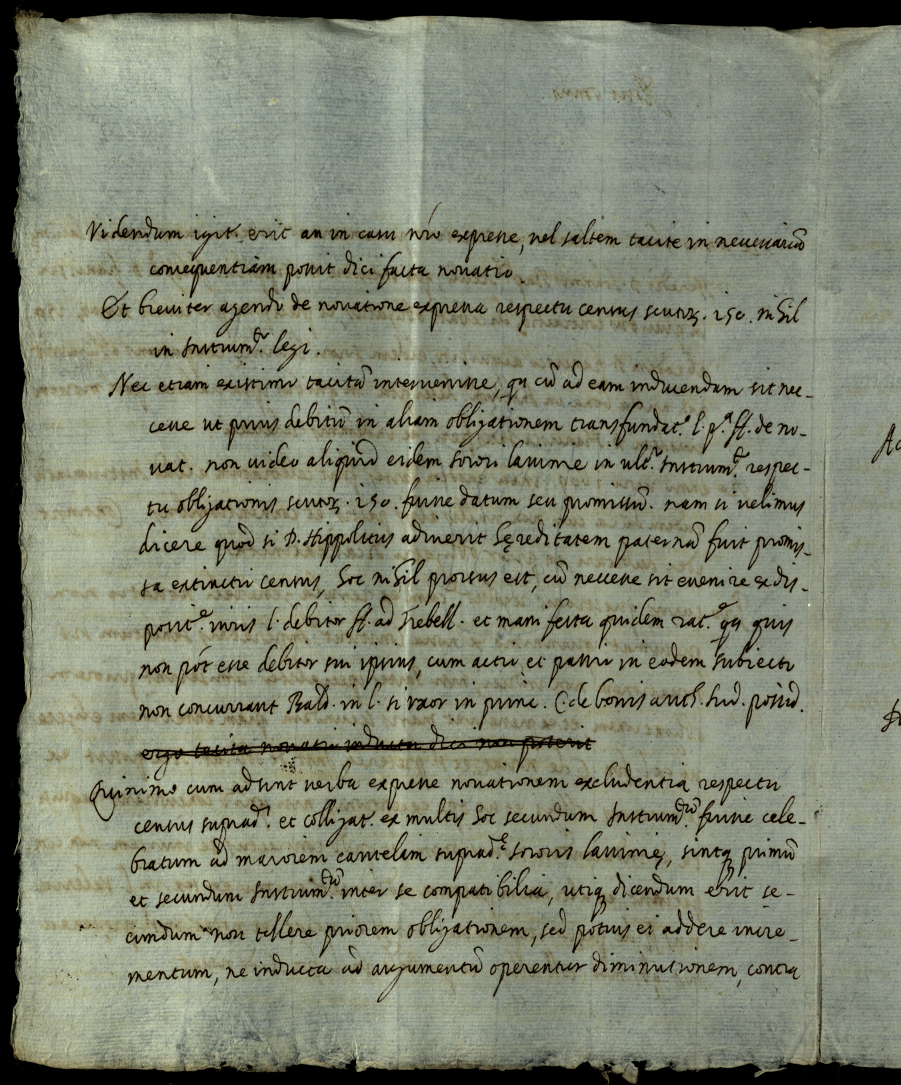 Videndum igit. erit an in casu nro expresse, vel saltem tacite in necessariã
consequentiam possit dici facta novatio.
Et breviter agendo de novatione expressa respectu census scutoꝝ. 250. nihil
in Instrum.to legi.
Nec etiam existimo tacitã intervenisse, qa cũ ad eam inducendam sit nec-
cesse ut prius debitũ in aliam obligationem transfundat.r l. p.a ff. de no-
vat. non video aliquid eidem sorori Lavinie in ult.o Instrum.to respec-
tu obligationis scutoꝝ. 250. fuisse datum seu promissũ. nam si velimus
dicere quod si D. Hippolitus adiverit hęreditatem paternã fuit promis-
sa extinctio census, hoc nihil prorsus est, cũ necesse sit evenire ex dis-
posit.e iuris l. debitor ff. ad Trebell. et manifesta quidem rat.e qa quis
non pót esse debitor sui ipsius, cum actio et passio in eodem subiecto
non concurrant Bald. in l. si uxor in princ. C. de bonis auth. Iud. possid.
ergo tacita novatio inducta dici non poterit
Quinimo cum adsint verba expresse novationem excludentia respectu
census suprad.i et colligat. ex multis hoc secundum Instrum.tũ fuisse cele-
bratum ad maiorem cautelam suprad.e sororis Lavinię, sintqꝫ primũ
et secundum Instrum.tũ inter se compatibilia, utiqꝫ dicendum erit se-
cundum non tollere priorem obligationem, sed potius ei addere incre-
mentum, ne inducta ad augumentũ operentur diminutionem, contra